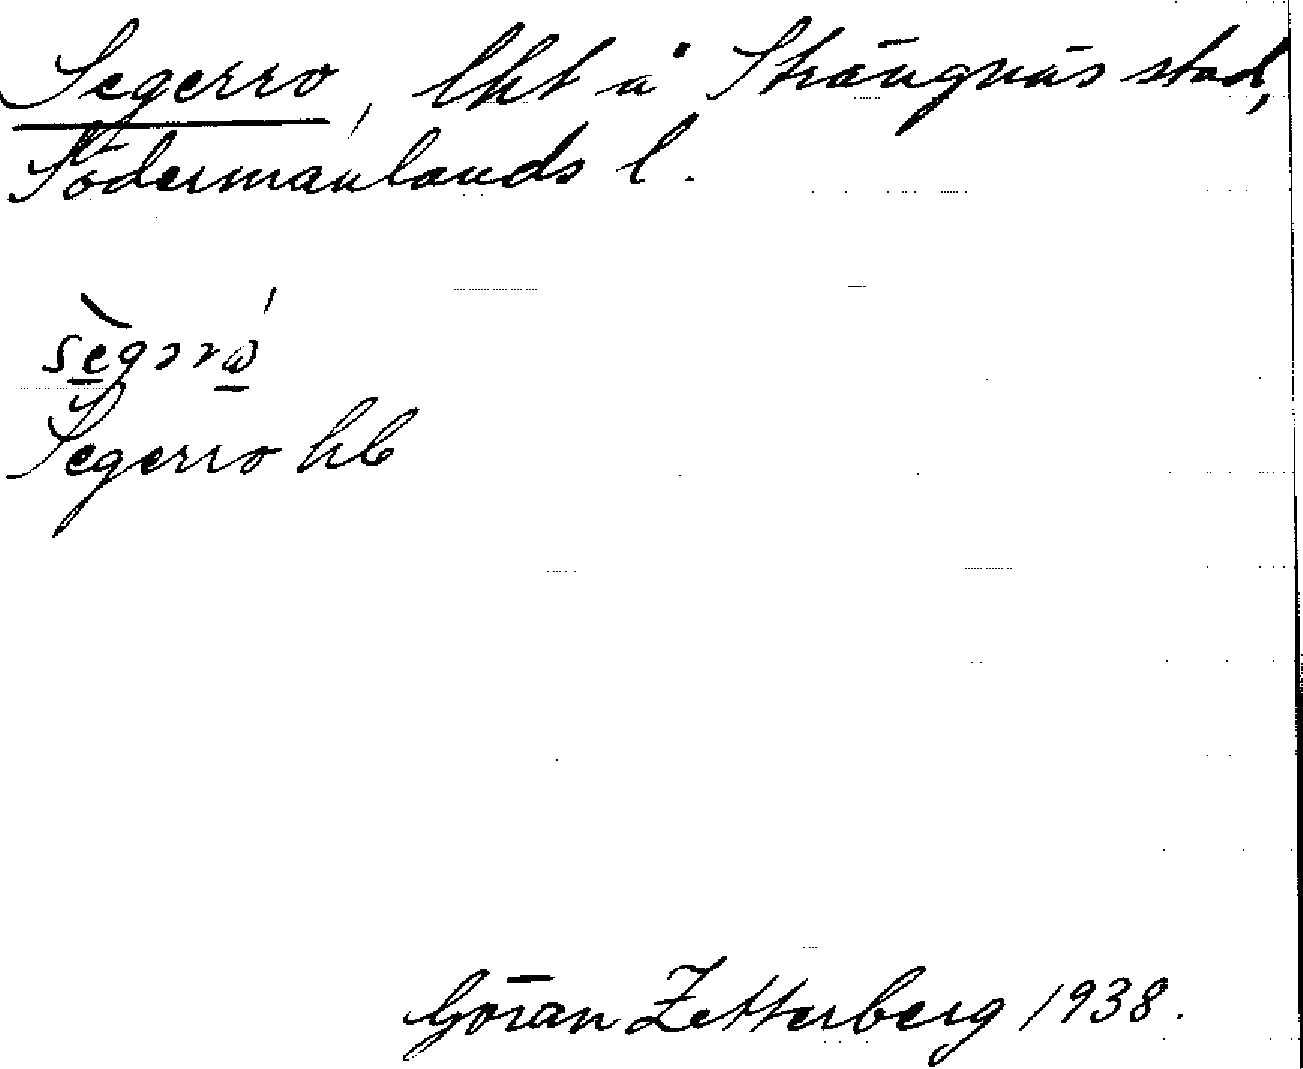 Segerro, lht å Strängnäs stad,
Södermanlands l.
Segerro hb
Göran Zetterberg 1938.